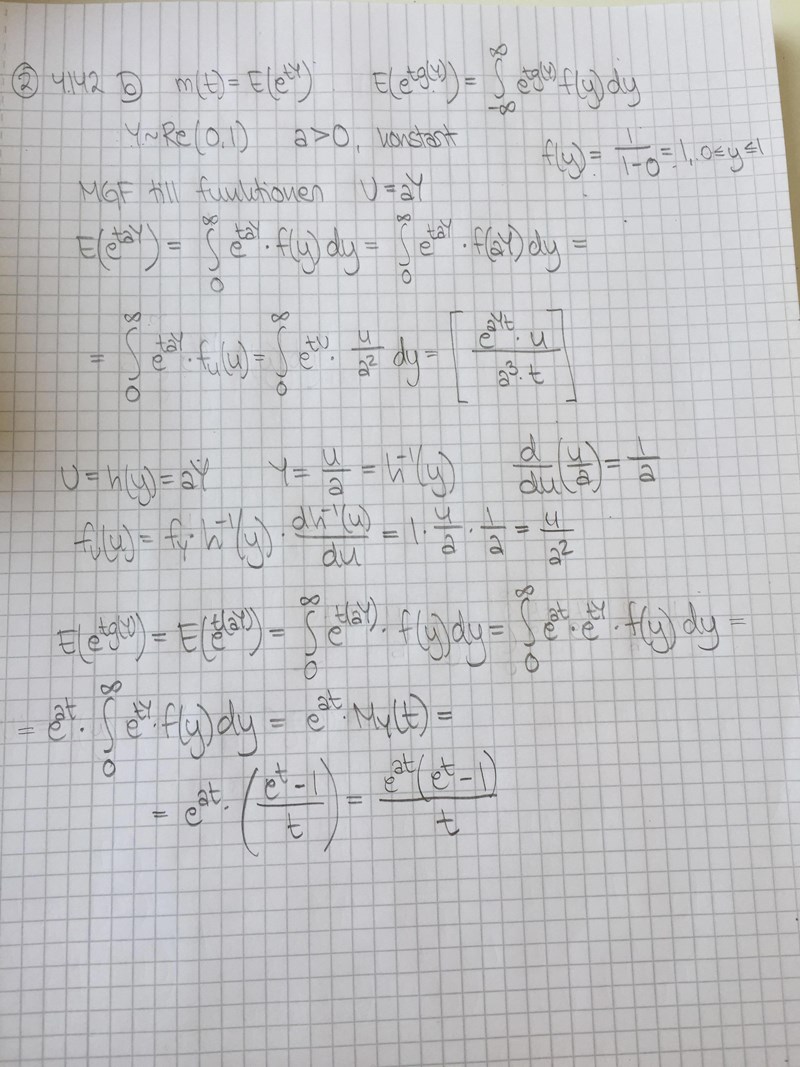 ② 4.142 b) m(t) = E(e^{tY}) E(e^{tg(Y)}) = ∫_{-∞}^{∞} e^{tg(Y)} f(y) dy
Y~Re(0,1) a>0, konstant f(y) = 1/(1-0) = 1, 0≤y≤1
MGF till funktionen U = aY
E(e^{taY}) = ∫_0^∞ e^{taY} · f(y) dy = ∫_0^∞ e^{taY} · f(aY) dy =
= ∫_0^∞ e^{taY} · f_U(u) = ∫_0^∞ e^{tU} · u/a² dy = [ (e^{aYt} · u)/(a³ · t) ]
U = h(y) = aY Y = u/a = h^{-1}(y) d/du (u/a) = 1/a
f_U(u) = f_Y · h^{-1}(y) · dh^{-1}(u)/du = 1 · u/a · 1/a = u/a²
E(e^{tg(Y)}) = E(e^{t(aY)}) = ∫_0^∞ e^{t(aY)} · f(y) dy = ∫_0^∞ e^{at} · e^{tY} · f(y) dy =
= e^{at} · ∫_0^∞ e^{tY} · f(y) dy = e^{at} · M_Y(t) =
= e^{at} · ((e^t - 1)/t) = (e^{at}(e^t - 1))/t